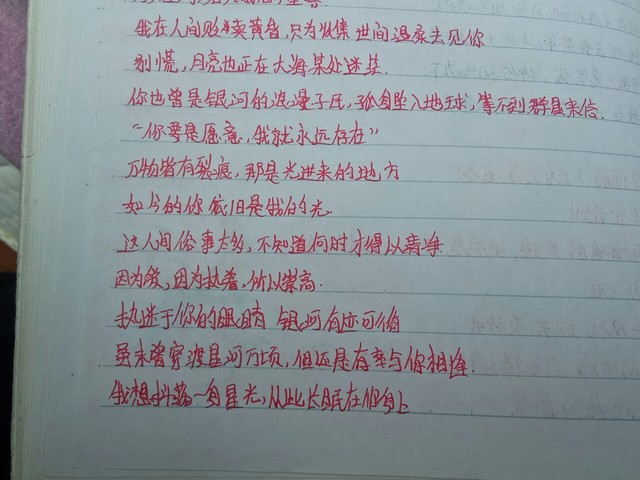 我在人间贩卖黄昏,只为收集世间温柔去见你
别慌,月亮也正在大海某处迷茫.
你也曾是银河的浪漫子民,孤身坠入地球,等不到群星来信.
“你要是愿意,我就永远存在”
万物皆有裂痕,那是光进来的地方
如今的你依旧是我的光.
这人间俗事太多,不知道何时才得以清净
因为爱,因为执着,所以崇高.
执迷于你的眼睛 银河有迹可循
虽未曾穿渡星河万顷,但还是有幸与你相逢.
我想抖落一身星光,从此长眠在你身上